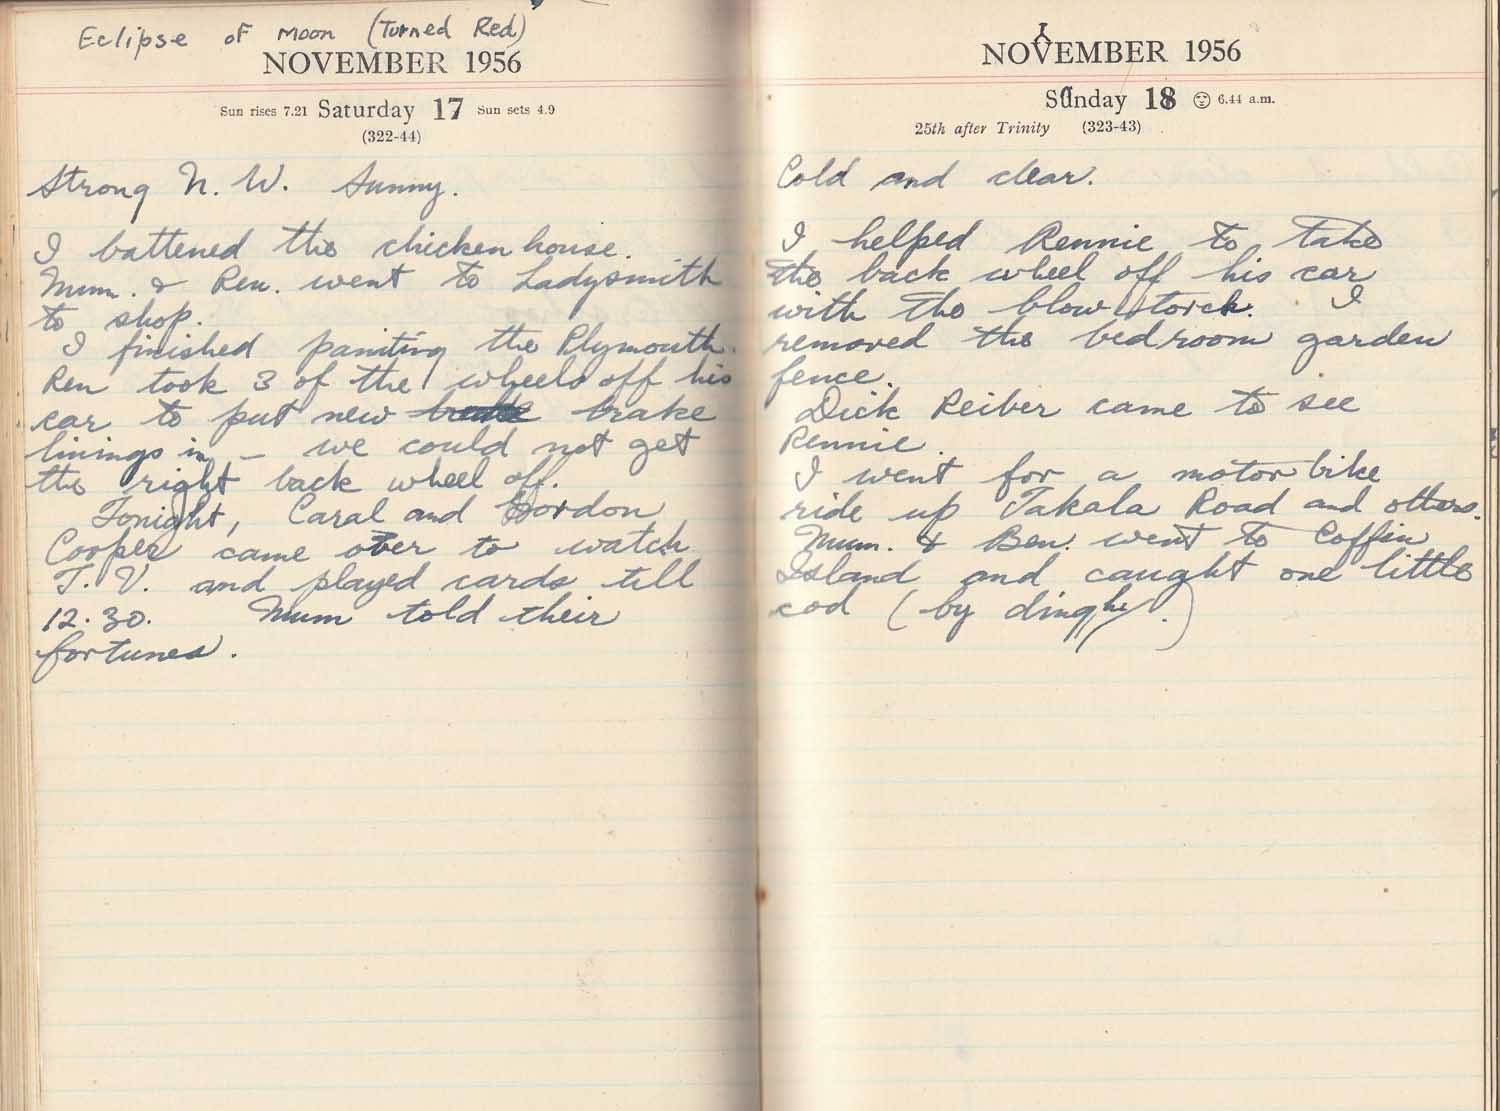 Eclipse of Moon (Turned Red)
NOVEMBER 1956
Sun rises 7.21 Saturday 17 Sun sets 4.9
(322-44)
Strong N. W. Sunny.
I battened the chicken house.
Mum. & Ren. went to Ladysmith
to shop.
I finished paniting the Plymouth.
Ren took 3 of the wheels off his
car to put new brake
linings in - we could not get
the right back wheel off.
Tonight, Caral and Gordon
Cooper came over to watch
T.V. and played cards till
12.30. Mum told their
fortunes.
NOVEMBER 1956
Sunday 18 6.44 a.m.
25th after Trinity (323-43)
Cold and clear.
I helped Rennie to take
the back wheel off his car
with the blow torch. I
removed the bedroom garden
fence.
Dick Reiber came to see
Rennie.
I went for a motor bike
ride up Takala Road and others.
Mum. & Ben. went to Coffin
Island and caught one little
cod (by dinghy.)